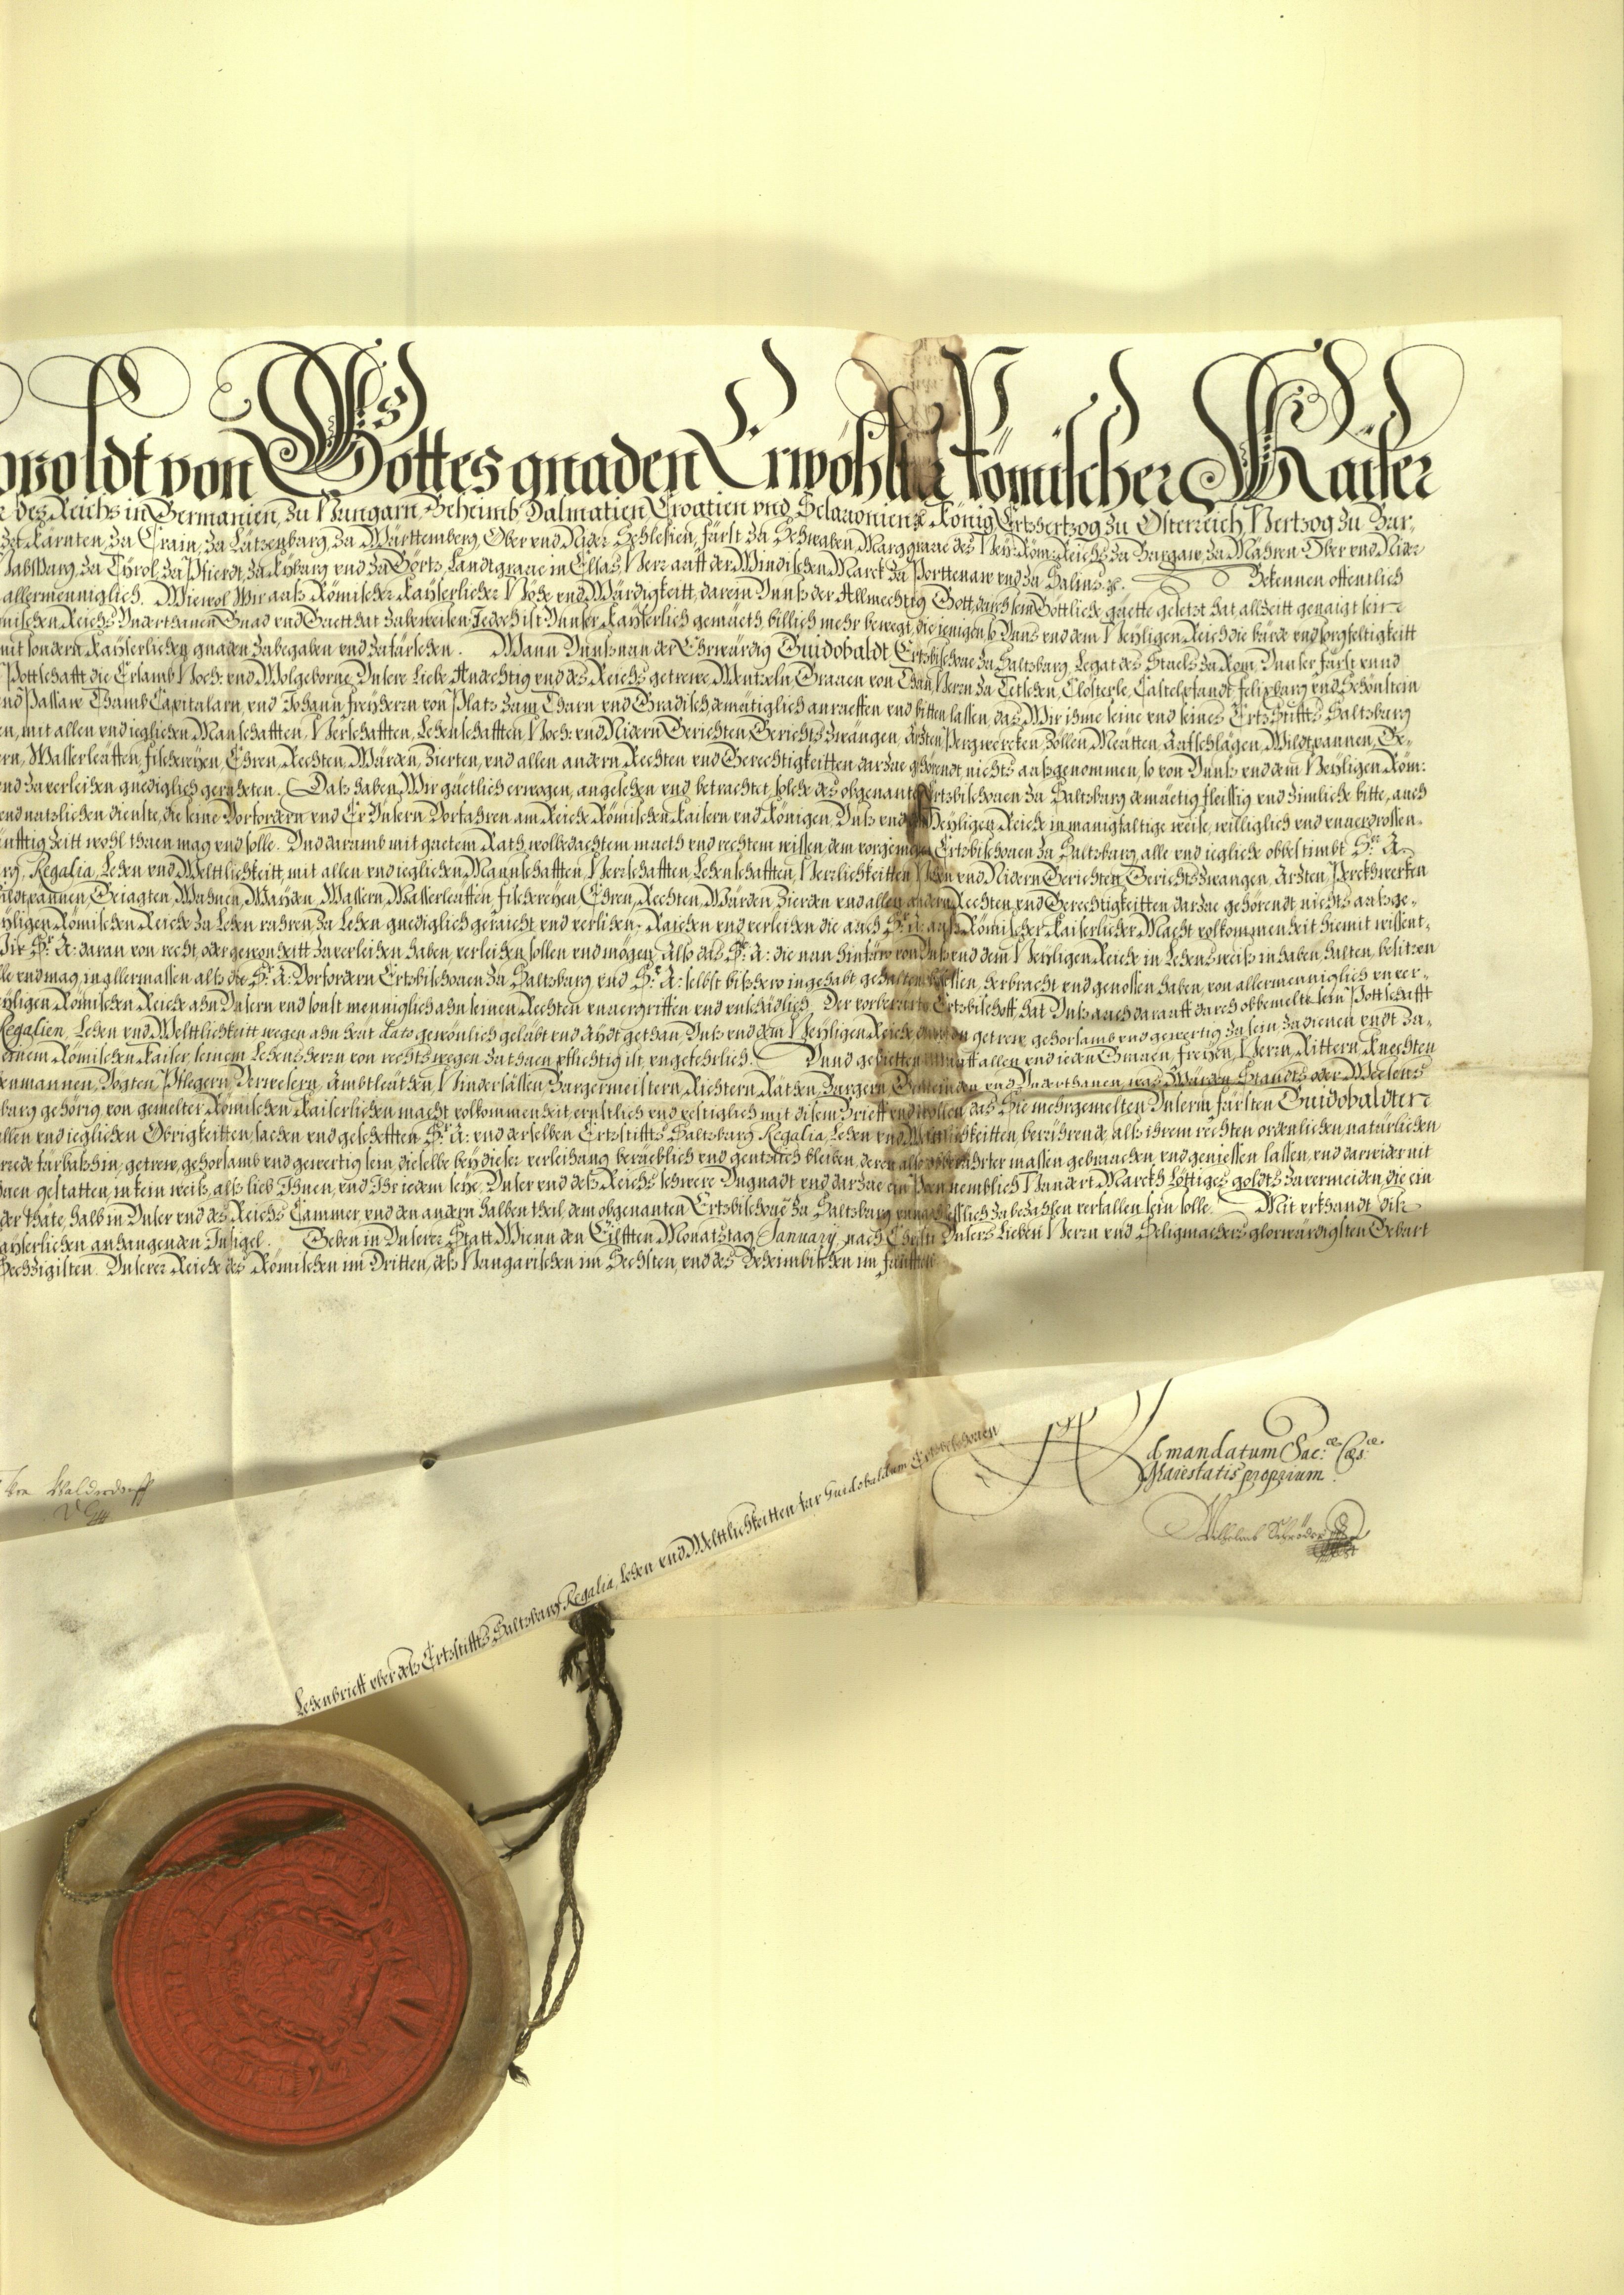 poldt von Gottes gnaden Erwöhlter Römischer Kaiser
des Reichs in Germanien, zu Hungarn, Beheimb, Dalmatien, Croatien vnd Sclauonien ꝛc. König, Ertzhertzog zu Österreich, Hertzog zu Bur-
Kärnten, zu Crain, zu Lützenburg, zu Württemberg, Ober vnd Nider Schlesien, fürst zu Schwaben, Marggraue des Hey: Röm: Reichs zu Burgaw, zu Mähren, Ober vnd Nider
Habsburg, zu Tÿrol, zu Pfierdt, zu Kÿburg vnd zu Görtz, Landtgraue in Elsas, Herr auff der Windischen Marck zu Porttenaw vnd zu Salins. ꝛc. Bekennen offentlich
allermenniglich. Wiewol Wir auß Römischer Kaÿserlicher Höhe vnd Würdigkeitt, darein Vnnß der Allmechtig Gott, durch sein Göttliche güette gesetzt hat, allzeitt genaigt sein
mischen Reichs Vnderthanen Gnad vnd Guett hat zubeweisen. Jedoch ist Vnnser Kaÿserlich gemüeth, billich mehr bewegt, die jenigen so Vnns vnd dem Heÿligen Reich die bürde vnd sorgfeltigkeitt
mit sondern Kaÿserlichen gnaden zubegaben vnd zufürsehen. Wann Vnnß nun der Ehrwürdig Guidobaldt Ertzbischoue zu Saltzburg, Legat des Stuels zu Rom, Vnnser fürst vnnd
Pottschafft die Ersamb Hoch: vnd Wolgeborne, Vnsere Liebe Andechtig vnd des Reichs getrewe, Wentzeln Grauen von Thun, Herrn zu Tetschen, Clösterle, Castelpfandt, felixburg vnd Schönstein
vnd Passaw Thumb Capitularn, vnd Johann freÿherrn von Platz zum Thurn vnd Gradisch, demüetiglich anrueffen vnd bitten lassen, das Wir ihme seine vnd seines Ertzstiffts Saltzburg
en, mit allen vnd ieglichen Manschafften, Herschafften, Lehenschafften, Hoch: vnd Nidern Gerichten, Gerichts zwängen, Ärtzten, Pergwercken, Zöllen, Meütten, Aufschlägen, Wildtpannen, Ge-
ern, Wasserleüffen, fischereÿen, Ehren, Rechten, Würden, Zierten, vnd allen andern Rechten vnd Gerechtigkeitten darzue gehörendt, nichts außgenommen, so von Vnnß vnd dem Heÿligen Röm:
vnd zuverleihen gnediglich geruheten. Das haben, Wir güetlich erwogen, angesehen vnd betrachtet, solche des obgenanten Ertzbischouen zu Saltzburg demüetig fleissig vnd zimliche bitte, auch
vnd nutzlichen dienste, die seine Vorfordern vnd Er Vnsern Vorfahren am Reiche Römischen Kaisern vnd Königen, Vnß vnd dem Heÿligen Reiche in manigfaltige weise, williglich vnd vnuerdrossen
künfftig Zeitt wohl thuen mag vnd solle. Vnd darumb mit guetem Rath, wolbedachtem mueth vnd rechtem wissen, dem vorgemelten Ertzbischouen zu Saltzburg, alle vnd iegliche obbestimbt Sr. A.
rg, Regalia, Lehen vnd Weltlichkeitt, mit allen vnd ieglichen Mannschafften, Herrschafften, Lehenschafften, Herrlichkeitten, Hohen vnd Nidern Gerichten, Gerichts zwangen, Ärtzten, Perckhwerken
ildtpännen, Geiagten, Wuhnen, Waÿden, Wassern, Wasserleüffen, fischereÿen, Ehren, Rechten, Würden, Zierden vnd allen andern Rechten vnd Gerechtigkeitten darzue gehörendt, nichts außge-
eÿligen Römischen Reiche zu Lehen ruhren, zu Lehen gnediglich geraicht vnd verlihen; Raichen vnd verleihen die auch Sr: A: auß Römischer Kaiserlicher Macht volkommenheit hiemit wissent-
Wir Sr: A: daran von recht, oder gewonheitt zuverleihen haben, verleihen sollen vnd mögen, Also das Sr: A: die nun hinfüro von Vnß vnd dem Heÿligen Reiche in Lehens weiß inhaben, halten, besitzen
lle vnd mag, in allermassen alß die Sr: A: Vorfordern Ertzbischouen zu Saltzburg vnd Sr: A: selbst bißhero ingehabt, gehalten, besessen, herbracht vnd genossen haben, von allermenniglich vnuer-
eÿligen Römischen Reiche ahn Vnsern vnd sonst menniglich ahn seinen Rechten vnuergriffen vnd vnschädlich. Der vorberürte Ertzbischoff, hat Vnß auch darauff durch obbemelte sein Pottschafft
Regalien, Lehen vnd Weltlichkeitt wegen ahn heut dato gewönlich gelübt vnd Aÿdt gethan, Vnß vnd dem Heÿligen Reiche, dauon getrew, gehorsamb vnd gewertig zu sein, zu dienen vndt zu-
einem Römischen Kaiser, seinem Lehens Herrn von rechts wegen zuthuen pflichtig ist, vngefehrlich. Vnnd gebietten darauff allen vnd ieden Grauen, freÿen, Herrn, Rittern, Knechten
enmannen, Vogten, Pflegern, Verwesern, Ambtleüthen, Hindersässen, Burgermeistern, Richtern, Räthen, Burgern, Gemeinden vnd Vnderthanen, was Würden, Standts oder Weesens
burg gehörig, von gemelter Römischen Kaiserlichen macht volkommenheit, ernstlich vnd vestiglich mit disem Brieff vnd wollen, das Sie mehrgemelten Vnserm fürsten Guidobaldten
allen vnd ieglichen Obrigkeitten, sachen vnd geschefften, Sr: A: vnd derselben Ertzstiffts Saltzburg Regalia, Lehen vnd Weltlichkeitten, berührendt, als ihrem rechten ordenlichen, natürlichen
rrede fürbaßhin, getrew, gehorsamb vnd gewertig sein, dieselbe beÿ dieser verleihung berüeblich vnd gentzlich bleiben, deren also obberührter massen gebrauchen, vnd geniessen lassen, vnd darwider nit
huen gestatten, in kein weiß, alß lieb Ihnen, vnd Ihr iedem seÿe, Vnser vnd deß Reichs schwere Vngnadt vnd darzue ein Poen, nemblich Hundert Marckh Löttiges goldts zuvermeiden, die ein
der thäte, halb in Vnser vnd des Reichs Cammer, vnd den andern halben theil, dem obgenanten Ertzbischoue zu Saltzburg vnnachleßlich zubezahlen verfallen sein solle. Mit vrkhundt diß
aÿserlichen anhangenden Insigel. Geben in Vnserer Statt Wienn den Eilfften Monatstag January, nach Christi Vnsers Lieben Herrn vnd Seligmachers glorwürdigsten Geburt
Sechzigisten. Vnserer Reiche des Römischen im Dritten, deß Hungarischen im Sechsten, vnd des Beheimbischen im fünfften
Walderdorff
Lehenbrieff vber deß Ertzstiffts Saltzburg Regalia, Lehen vnd Welttlichkeitten für Guidobaldum Ertzbischouen
Ad mandatum Sac: ae Caes: ae
Maiestatis proprium.
Wilhelmb Schröder